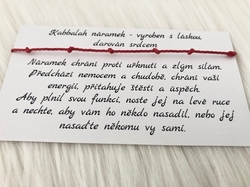 Kabbalah náramek - vyroben s láskou,
darován srdcem
Náramek chrání proti uřknutí a zlým silám.
Předchází nemocem a chudobě, chrání vaši
energii, přitahuje štěstí a úspěch.
Aby plnil svou funkci, noste jej na levé ruce
a nechte, aby vám ho někdo nasadil, nebo jej
nasaďte někomu vy sami.